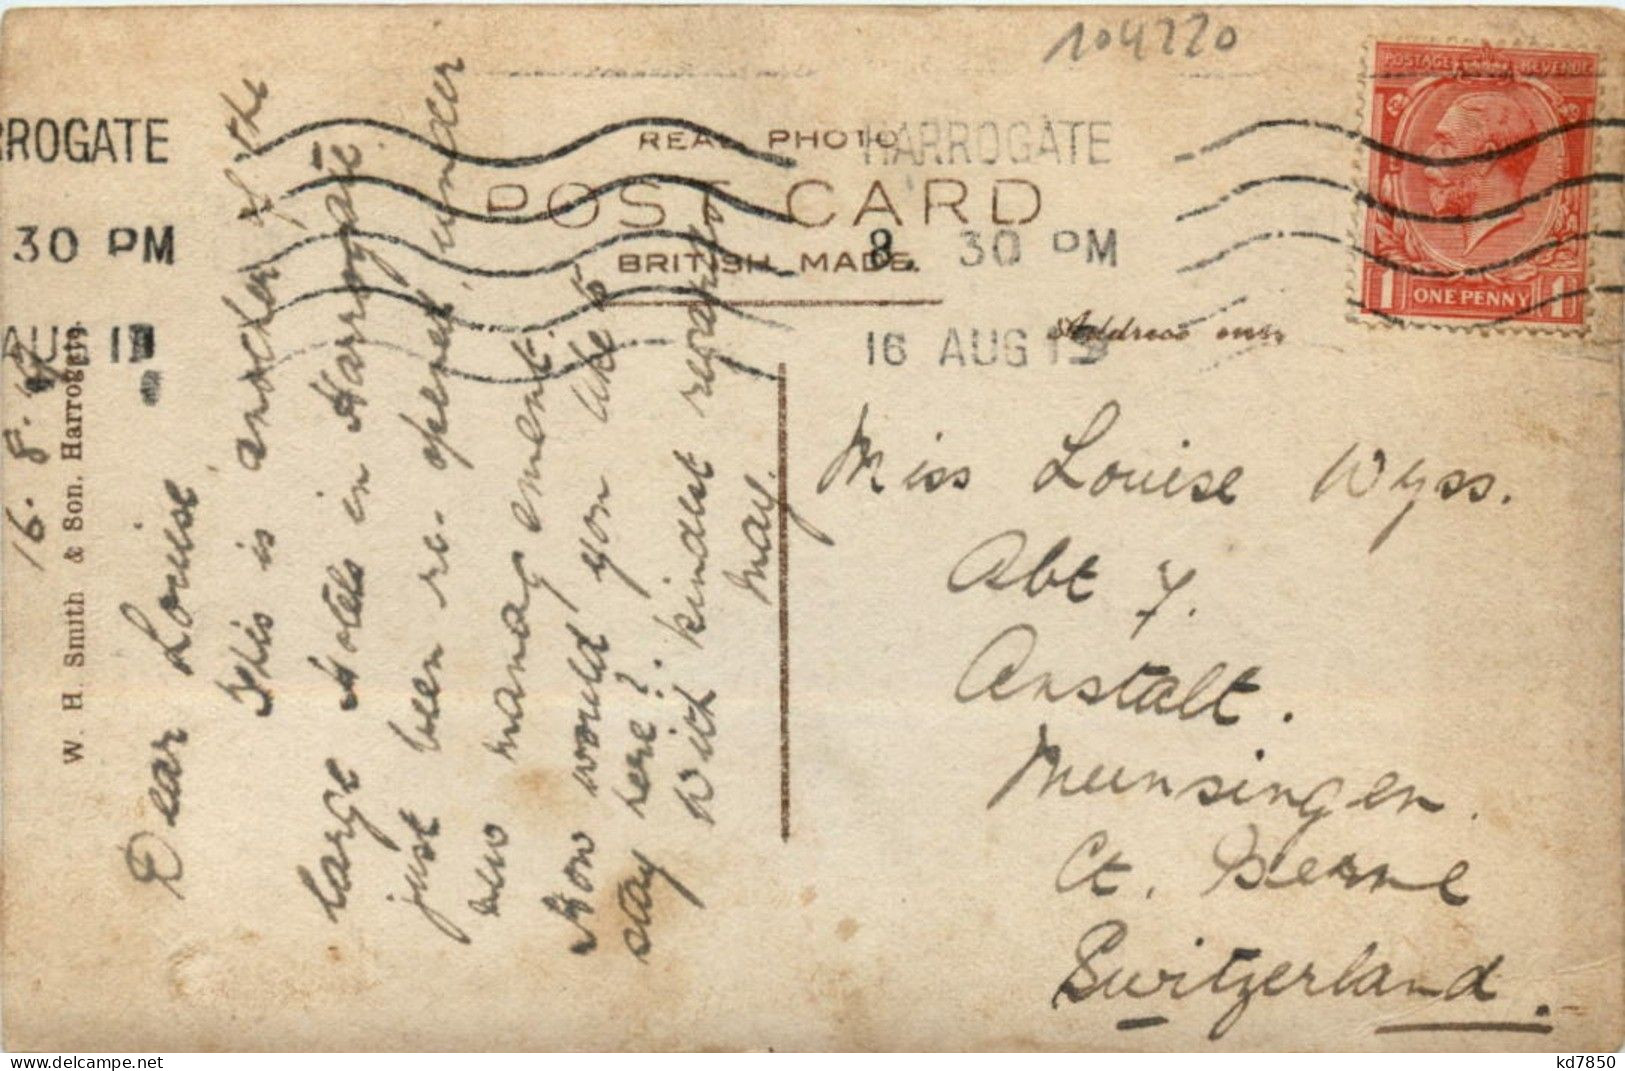 104220
REAL PHOTO
POST CARD
BRITISH MADE.
HARROGATE
8. 30 PM
16 AUG 19
ROGATE
30 PM
AUG 1
POSTAGE REVENUE
1 ONE PENNY 1
Address only
W. H. Smith & Son. Harrogate.
16. 8.
Dear Louise
This is another of the
large Hotels in Harrogate.
just been re-opened, under
new management.
How would you like to
stay here?
With kindest regards
May.
Miss Louise Wyss.
Abt 7.
Anstalt.
Muensingen.
Ct. Berne
Switzerland.
kd7850